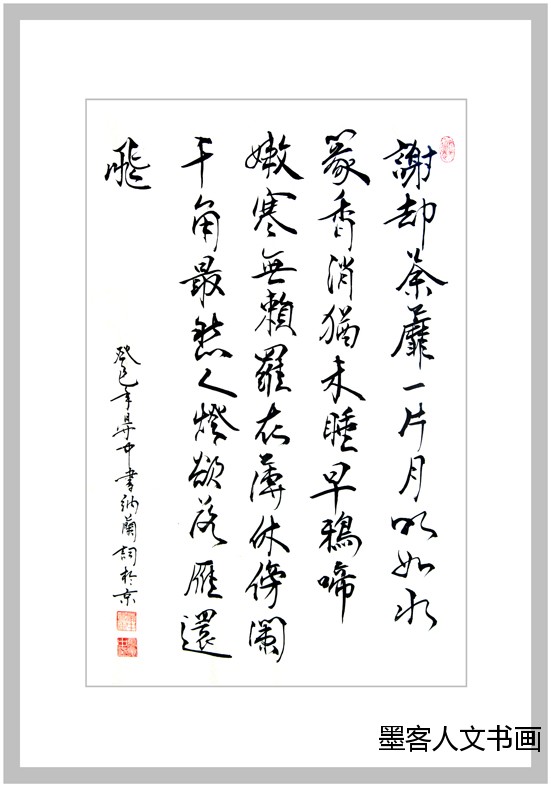 謝却荼蘼一片月明如水
篆香消猶未睡早鴉啼
嫩寒無賴羅衣薄休傍闌
干角最愁人燈欲落雁還
飛
癸巳年中書納蘭詞於京
墨客人文书画